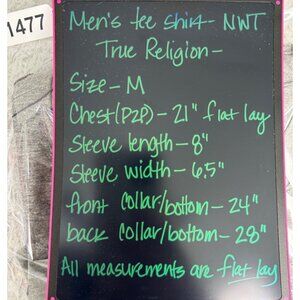 1477
Men's tee shirt - NWT
True Religion -
Size - M
Chest (P2P) - 21" flat lay
Sleeve length - 8"
Sleeve width - 6.5"
front collar/bottom - 24"
back collar/bottom - 28"
All measurements are flat lay